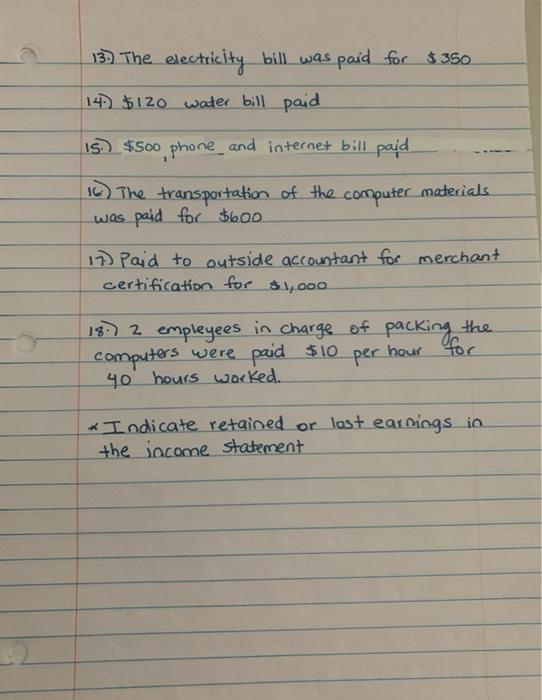 13.) The electricity bill was paid for $350
14.) $120 water bill paid
15.) $500 phone and internet bill paid
16.) The transportation of the computer materials
was paid for $600
17.) Paid to outside accountant for merchant
certification for $1,000
18.) 2 empleyees in charge of packing the
computers were paid $10 per hour for
40 hours worked.
* Indicate retained or lost earnings in
the income statement